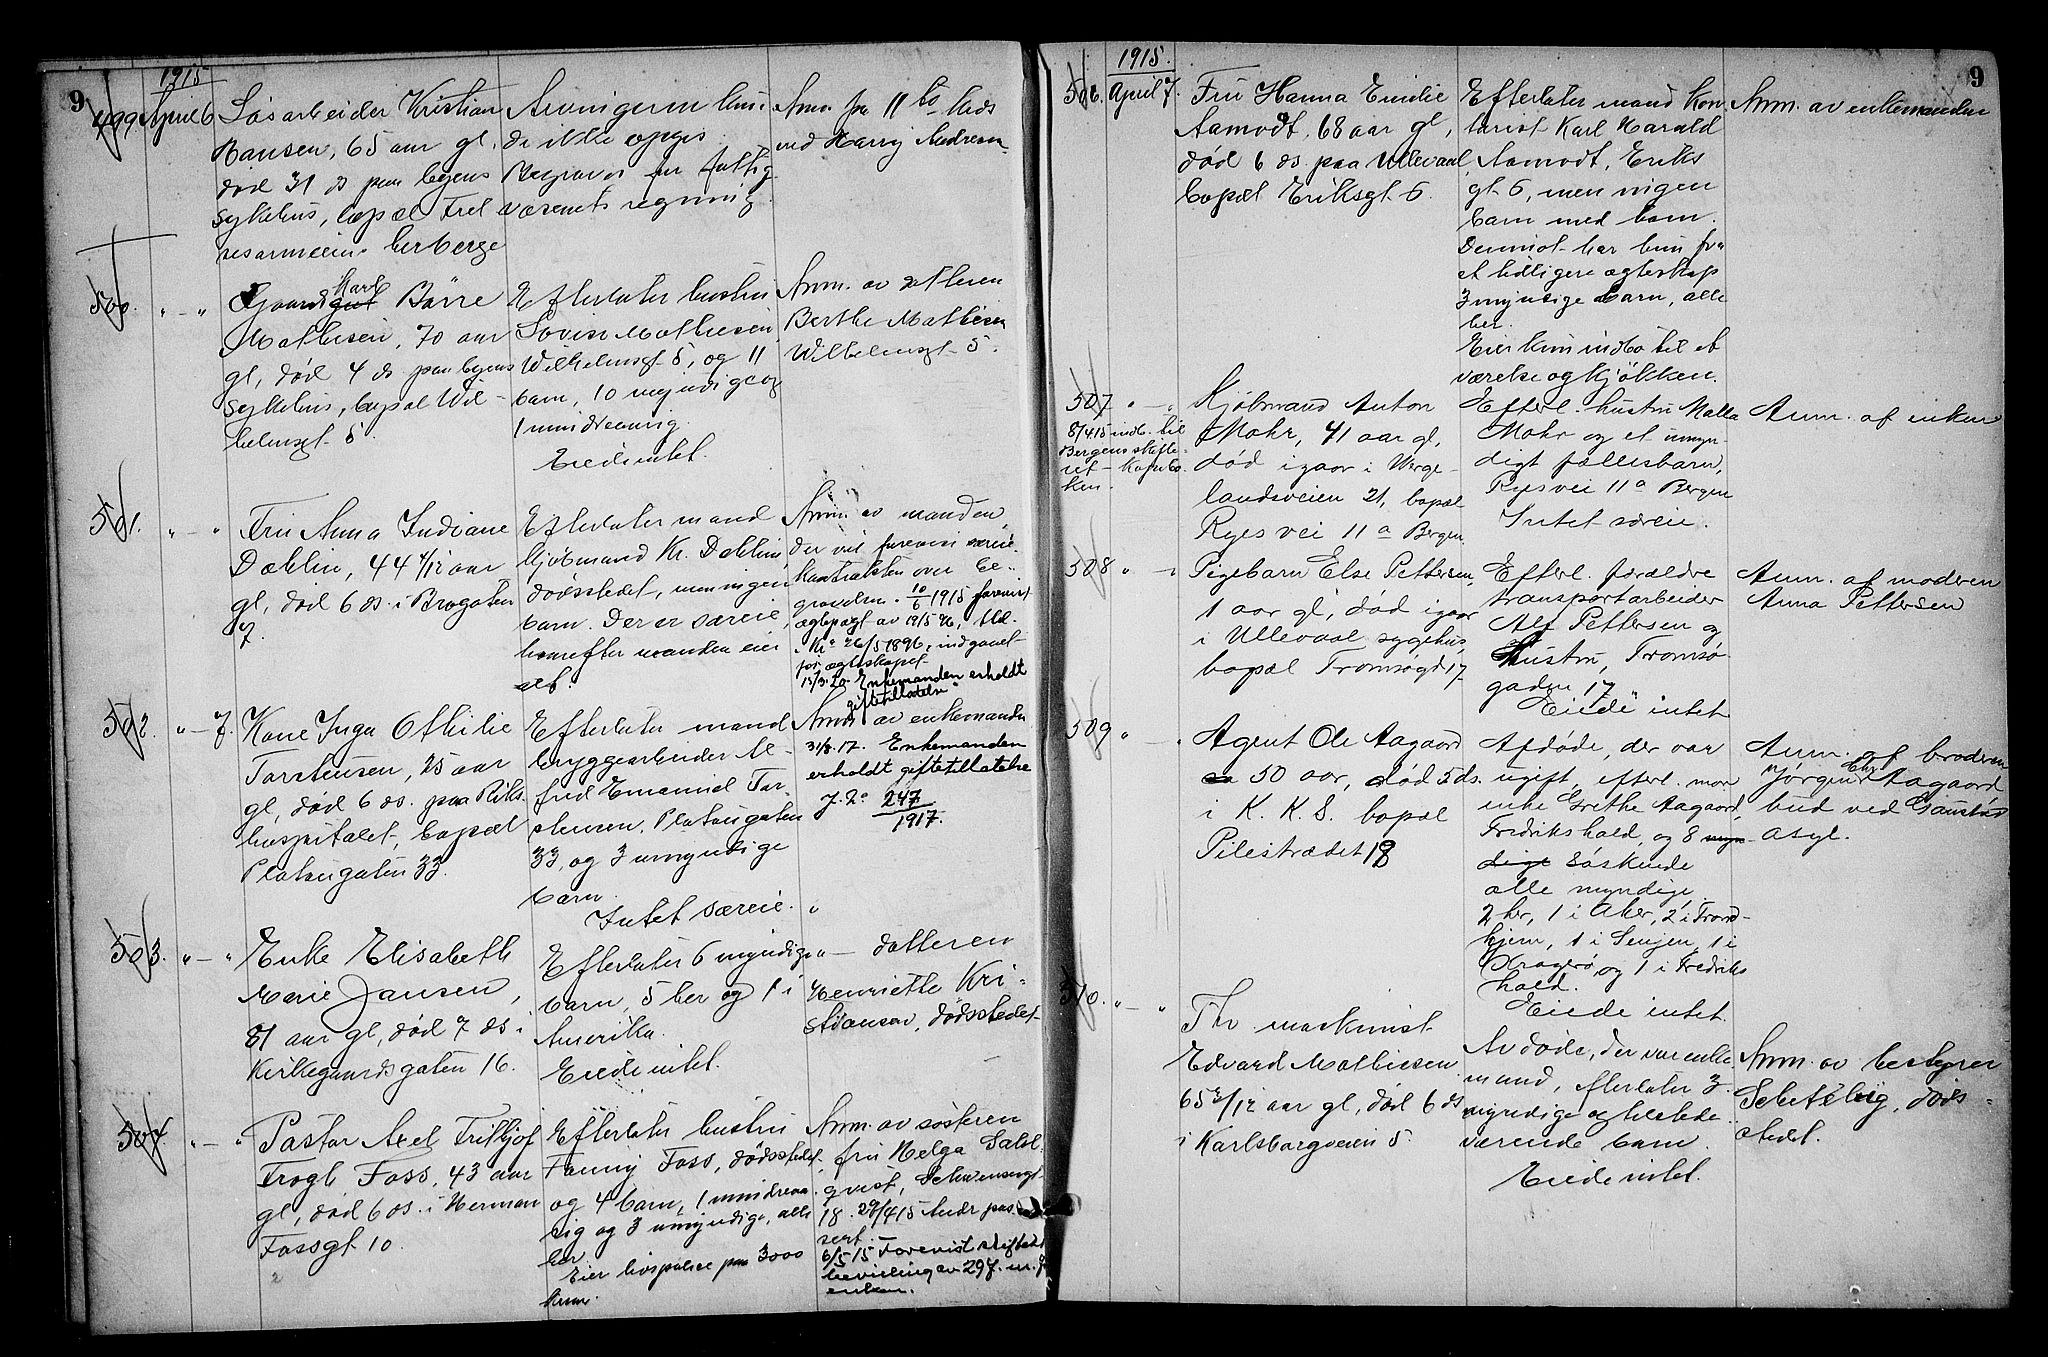 1915
9
499 April 6 Løsarbeider Kristian
Hansen, 65 aar gl,
død 31 ds paa byens
sykehus, bopæl Frel
sesarmeens herberge
Arvingerne hus
de ikke opgis
Begraves for fattig
væsenets regning.
Anm. fra 11te kreds
ved Harry Andresen
500. " — " Gaards Karl Børre
Mathisen, 70 aar
gl, død 4 ds paa byens
sykehus, bopæl Wil-
helmsgt 5.
Efterlater hustru
Lovise Mathisen
Wilhelmsgt 5, og 11
barn, 10 myndige og
1 mindreaarig.
Eiedeintet.
Anm. av datteren
Berthe Mathisen
Wilhelmsgt 5.
501. " — " Fru Anna Indiane
Dæhlin, 44 4/12 aar
gl, død 6 ds. i Brogaten
7.
Efterlater mand
kjøbmand Kr. Dæhlin
dødsstedet, men ingen
barn. Der er særeie,
hvorefter manden eier
alt.
Anm. av manden,
der vil forevise særeie-
kontrakten over be-
gravelsen. 10/6 1915 forevist
ægtepagt av 19/5 96, tlæ.
i Kr.a 26/5 1896, indgaaet
før ægteskapet
Enkemanden erholdt
giftetillatelse
502. " — 7. Kone Inga Othilie
Torstensen, 25 aar
gl, død 6 ds. paa Riks-
hospitalet, bopæl
Platougaten 33.
Efterlater mand
bryggearbeider Al-
fred Emanuel Tor-
stensen, Platougaten
33, og 3 umyndige
barn.
Intet særeie.
Anm av enkemanden
31/8. 17. Enkemanden
erholdt giftetillatelse
J. No 247/1917.
503. " — " Enke Elisabeth
Marie Jansen,
81 aar gl, død 7 ds i
Kirkegaardsgaten 16.
Efterlater 6 myndige
barn, 5 her og 1 i
Amerika.
Eiede intet.
" — datteren
Henriette Kri-
stiansen, dødsstedet
504. " — " Pastor Axel Frithjof
Trogh Foss, 43 aar
gl, død 6 ds. i Herman
Fossgt 10.
Efterlater hustru
Fanny Foss, dødsstedet,
og 4 barn, 1 mindreaa-
rig og 3 umyndige, alle
her
Eier livspolise paa 3000
kron.
Anm. av søsteren
fru Helga Sahl-
qvist, Schwensensgt
18. 29/4 15 Andr pas
sert.
6/5 15 Forevist skiftet
bevilling av 29 f. m. f.
enken.
1915.
9
506. April 7. Fru Hanna Emilie
Aamodt, 68 aar gl,
død 6 ds. paa Ullevaal
bopæl Eriksgt. 6.
Efterlater mand kon
torist Karl Harald
Aamodt, Eriks
gt. 6, men ingen
barn med ham.
Derimot har hun fra
et tidligere ægteskap
3 myndige barn, alle
her.
Eier kun indbo til et
værelse og kjøkken.
Anm. av enkemanden
507 " — "
8/4 15 indb. til
Bergens skifte-
ret - Kopibo-
ken.
Kjøbmand Anton
Mohr, 41 aar gl,
død igaar i Werge-
landsveien 21, bopæl
Ryes vei 11a Bergen
Efterl. hustru Malla
Mohr og et umyn-
digt fællesbarn,
Ryes vei 11a Bergen
Intet særeie.
Anm. af enken
508 " — " Pigebarn Else Pettersen,
1 aar gl, død igaar
i Ullevaal sygehus,
bopæl Tromsøgd 17
Efterl. forældre
transportarbeider
Alf Pettersen og
Hustru, Tromsø-
gaden 17
Eiede intet
Anm. af moderen
Anna Pettersen
509 " — " Agent Ole Aagaard
50 aar, død 5 ds.
i K. K. S. bopæl
Pilestrædet 18
Afdøde, der var
ugift, efterl. mor
enke Grethe Aagaard,
Fredrikshald, og 8 myn-
dige søskende
alle myndige,
2 her, 1 i Aker, 2 i Trond-
hjem, 1 i Senjen, 1 i
Kragerø og 1 i Fredriks
hald.
Eiede intet.
Anm. af broderen
Jørgen Chr. Aagaard
bud ved Gaustad
Asyl.
510. " — " Fhv maskinist
Edvard Mathiesen
65 2/12 aar gl, død 6 ds
i Karlsborgveien 5.
Avdøde, der var enke
mand, efterlater 3
myndige og tilstede-
værende barn.
Eiede intet.
Anm. av bestyrer
Schetelig, døds-
stedet.